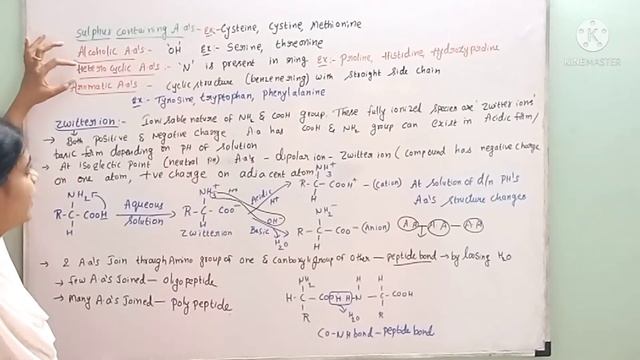 Sulphur containing A.a's - ex - Cysteine, cystine, Methionine
Alcoholic A.a's - 'OH' Ex:- Serine, threonine
Heterocyclic A.a's - 'N' is present in ring Ex:- Proline, Histidine, Hydroxyproline
Aromatic A.a's - Cyclic structure (benzenering) with straight side chain
ex - Tyrosine, tryptophan, phenylalanine
Zwitterion :- Ionisable nature of NH2 & COOH group. These fully ionized species are 'Zwitter ions'
Both positive & Negative charge. A.a has COOH & NH2 group can exist in Acidic form/
basic form depending on pH of solution
→ At isoelectic point (neutral pH) A.a's - dipolar ion - Zwitterion (compound has negative charge
on one atom, +ve charge on adjacent atom
NH3+
R-C-COOH - (cation)
H
At solution of d/n pH's
A.a's structure changes
NH2
R-C-COOH
H
Aqueous
solution
NH3+
R-C-COO-
H
Zwitterion
Acidic
H+
OH-
Basic
H2O
NH2
R-C-COO- (Anion)
H
→ 2 A.a's Join through Amino group of one & carboxyl group of other - peptide bond → by loosing H2O
→ Few A.a's Joined - oligopeptide
→ Many A.a's Joined - polypeptide
CO-NH bond - peptide bond
KINEMASTER